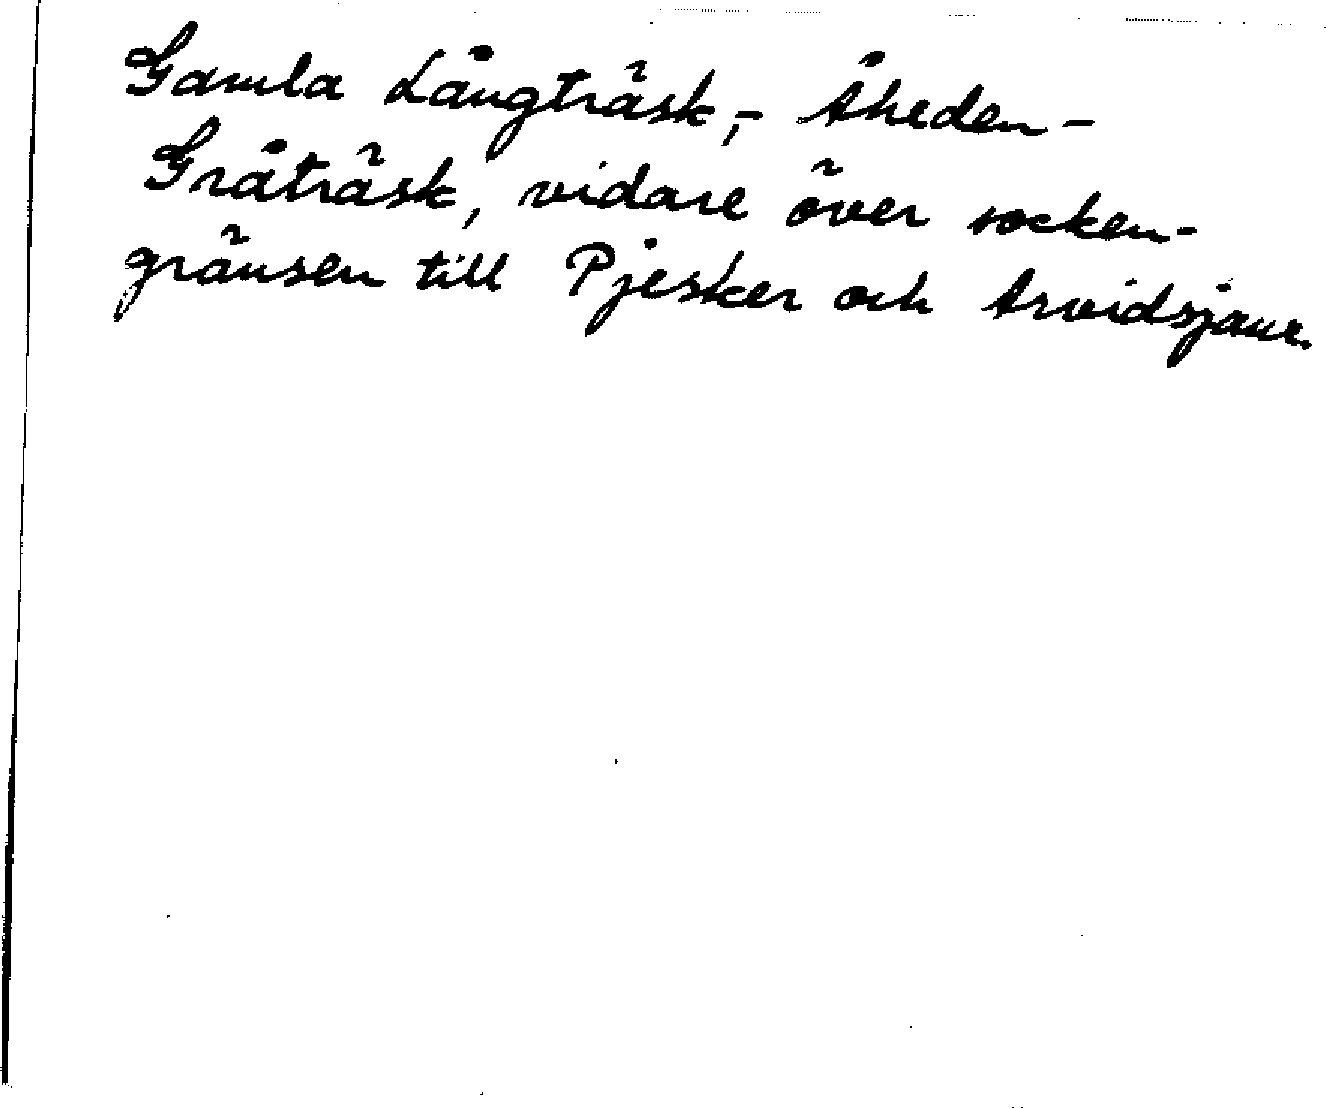 Gamla Långträsk,- Åheden-
Gråträsk, vidare över socken-
gränsen till Pjesker och Arvidsjaur.